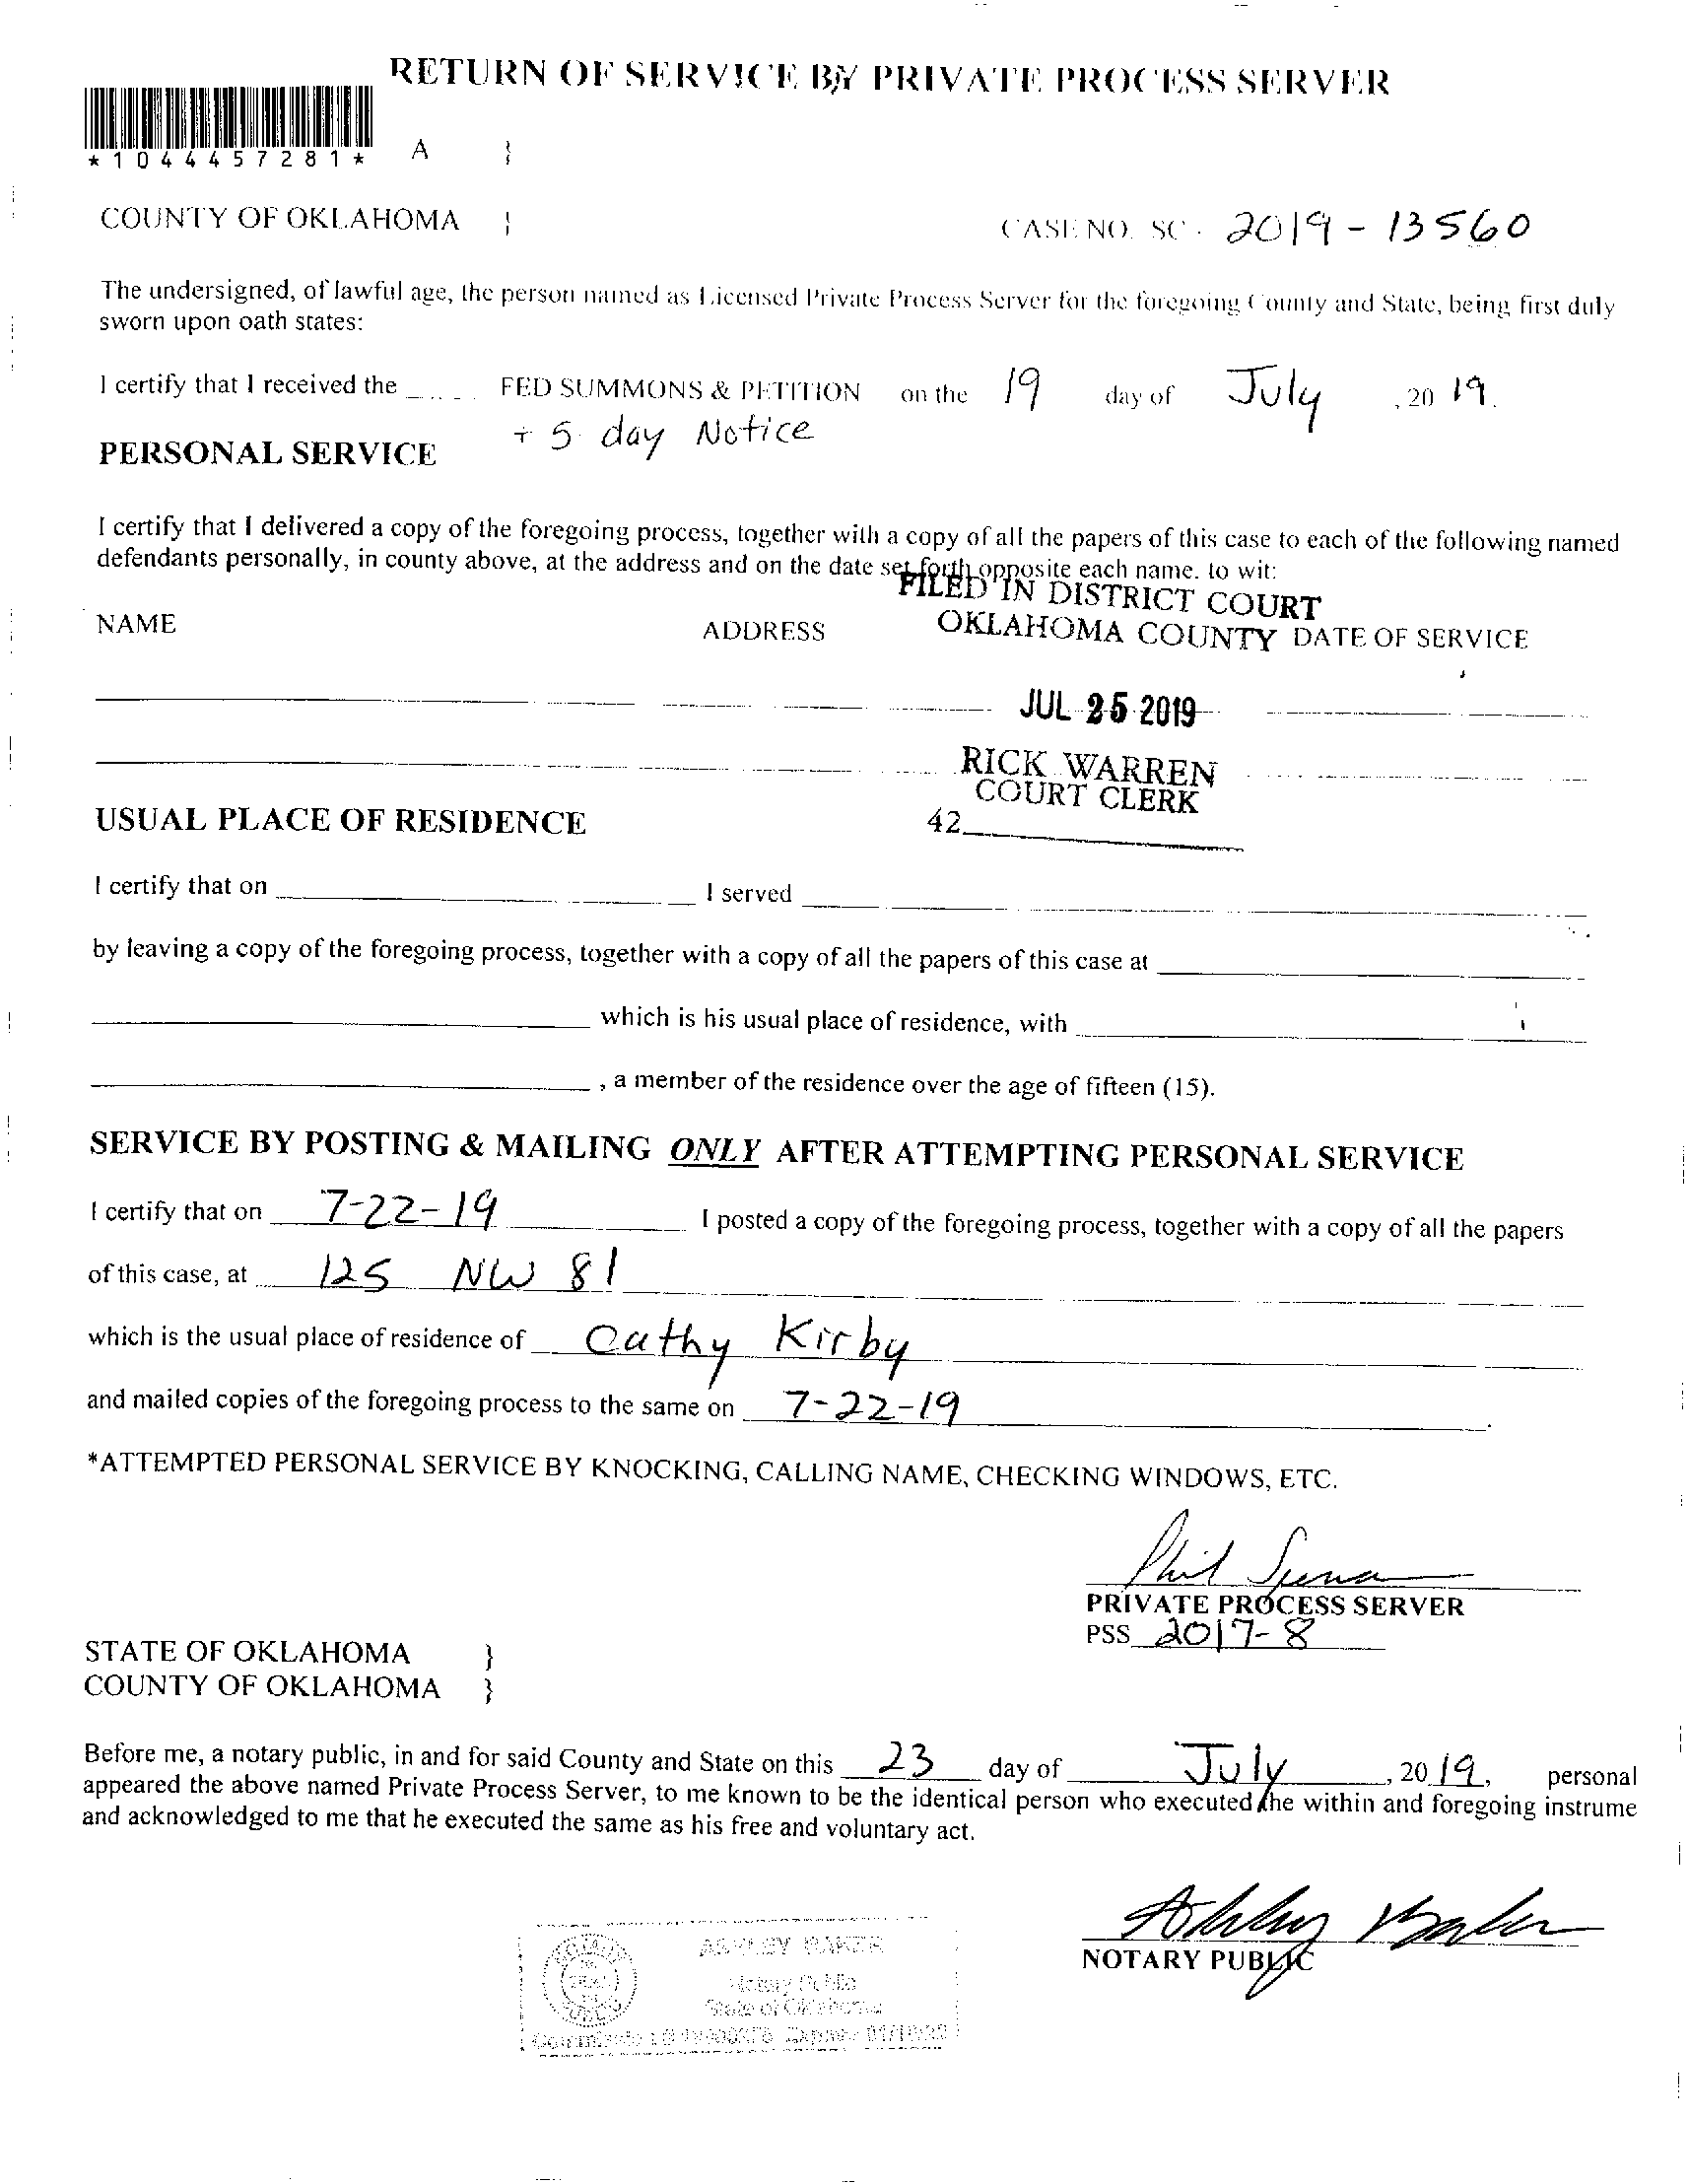 RETURN OF SERVICE BY PRIVATE PROCESS SERVER
*1044457281* A }
COUNTY OF OKLAHOMA }
CASE NO. SC - 2019 - 13560
The undersigned, of lawful age, the person named as Licensed Private Process Server for the foregoing County and State, being first duly
sworn upon oath states:
I certify that I received the FED SUMMONS & PETITION on the 19 day of July , 20 19.
+ 5 day Notice
PERSONAL SERVICE
I certify that I delivered a copy of the foregoing process, together with a copy of all the papers of this case to each of the following named
defendants personally, in county above, at the address and on the date set forth opposite each name. to wit:
FILED IN DISTRICT COURT
OKLAHOMA COUNTY
NAME ADDRESS DATE OF SERVICE
JUL 25 2019
RICK WARREN
COURT CLERK
42
USUAL PLACE OF RESIDENCE
I certify that on I served
by leaving a copy of the foregoing process, together with a copy of all the papers of this case at
which is his usual place of residence, with
, a member of the residence over the age of fifteen (15).
SERVICE BY POSTING & MAILING ONLY AFTER ATTEMPTING PERSONAL SERVICE
I certify that on 7-22-19 I posted a copy of the foregoing process, together with a copy of all the papers
of this case, at 125 NW 81
which is the usual place of residence of Cathy Kirby
and mailed copies of the foregoing process to the same on 7-22-19 .
*ATTEMPTED PERSONAL SERVICE BY KNOCKING, CALLING NAME, CHECKING WINDOWS, ETC.
Phil
PRIVATE PROCESS SERVER
PSS 2017-8
STATE OF OKLAHOMA }
COUNTY OF OKLAHOMA }
Before me, a notary public, in and for said County and State on this 23 day of July , 20 19, personal
appeared the above named Private Process Server, to me known to be the identical person who executed the within and foregoing instrume
and acknowledged to me that he executed the same as his free and voluntary act.
Ashley Baker
NOTARY PUBLIC
ASHLEY BAKER
Notary Public
State of Oklahoma